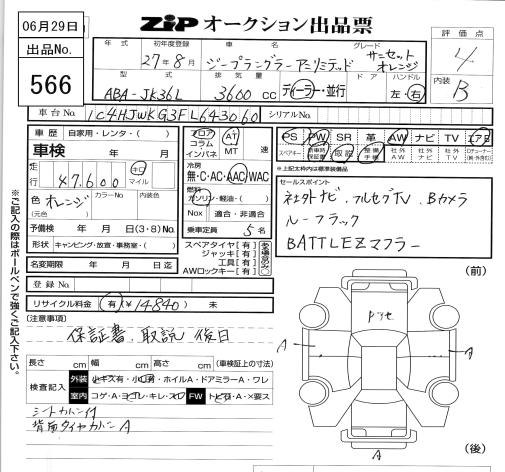 06月29日
ZIP オークション出品票
出品No.
566
年式 初年度登録 車名 グレード
27年8月 ジープラングラーアンリミテッド サンセットオレンジ
評価点
4
内装
B
型式 排気量 ドア ハンドル
ABA-JK36L 3600 CC ディーラー・並行 左・右
車台No. 1C4HJWKG3FL643060 シリアルNo.
車歴 自家用・レンタ・( )
車検 年 月 日
フロア コラム インパネ AT MT 速
PS PW SR 革 AW ナビ TV エアB
スペアキー 新車時保証書 取説 整備手帳 社外AW 社外ナビ 社外TV
※上記太枠内は標準装備品
走行 47,600 キロ マイル
冷房
無・C・AC・AAC・WAC
燃料
ガソリン・軽油・( )
色 オレンジ カラーNo 内装色
(元色)
Nox 適合・非適合
予備検 年 月 日(3・8)No.
乗車定員 5名
形状 キャンピング・放宣・事務室・( )
スペアタイヤ[有]
ジャッキ[有]
工具[有]
AWロックキー[有]
名変期限 年 月 日迄
セールスポイント
社外ナビ・フルセグTV、Bカメラ
ルーフラック
BATTLEZマフラー
登録No.
リサイクル料金 有(¥14840) 未
注意事項
保証書、取説 後日
(前)
長さ cm 幅 cm 高さ cm (車検証上の寸法)
検査記入 外装 小キズ有・小凹有・ホイルA・ドアミラーA・ワレ
室内 コゲ・A・ヨゴレ・キレ・スレ FW トビ石・A・×要ス
シートカバー付
背面タイヤカバーA
A
A
A
(後)
※ご記入の際はボールペンで強くご記入下さい。